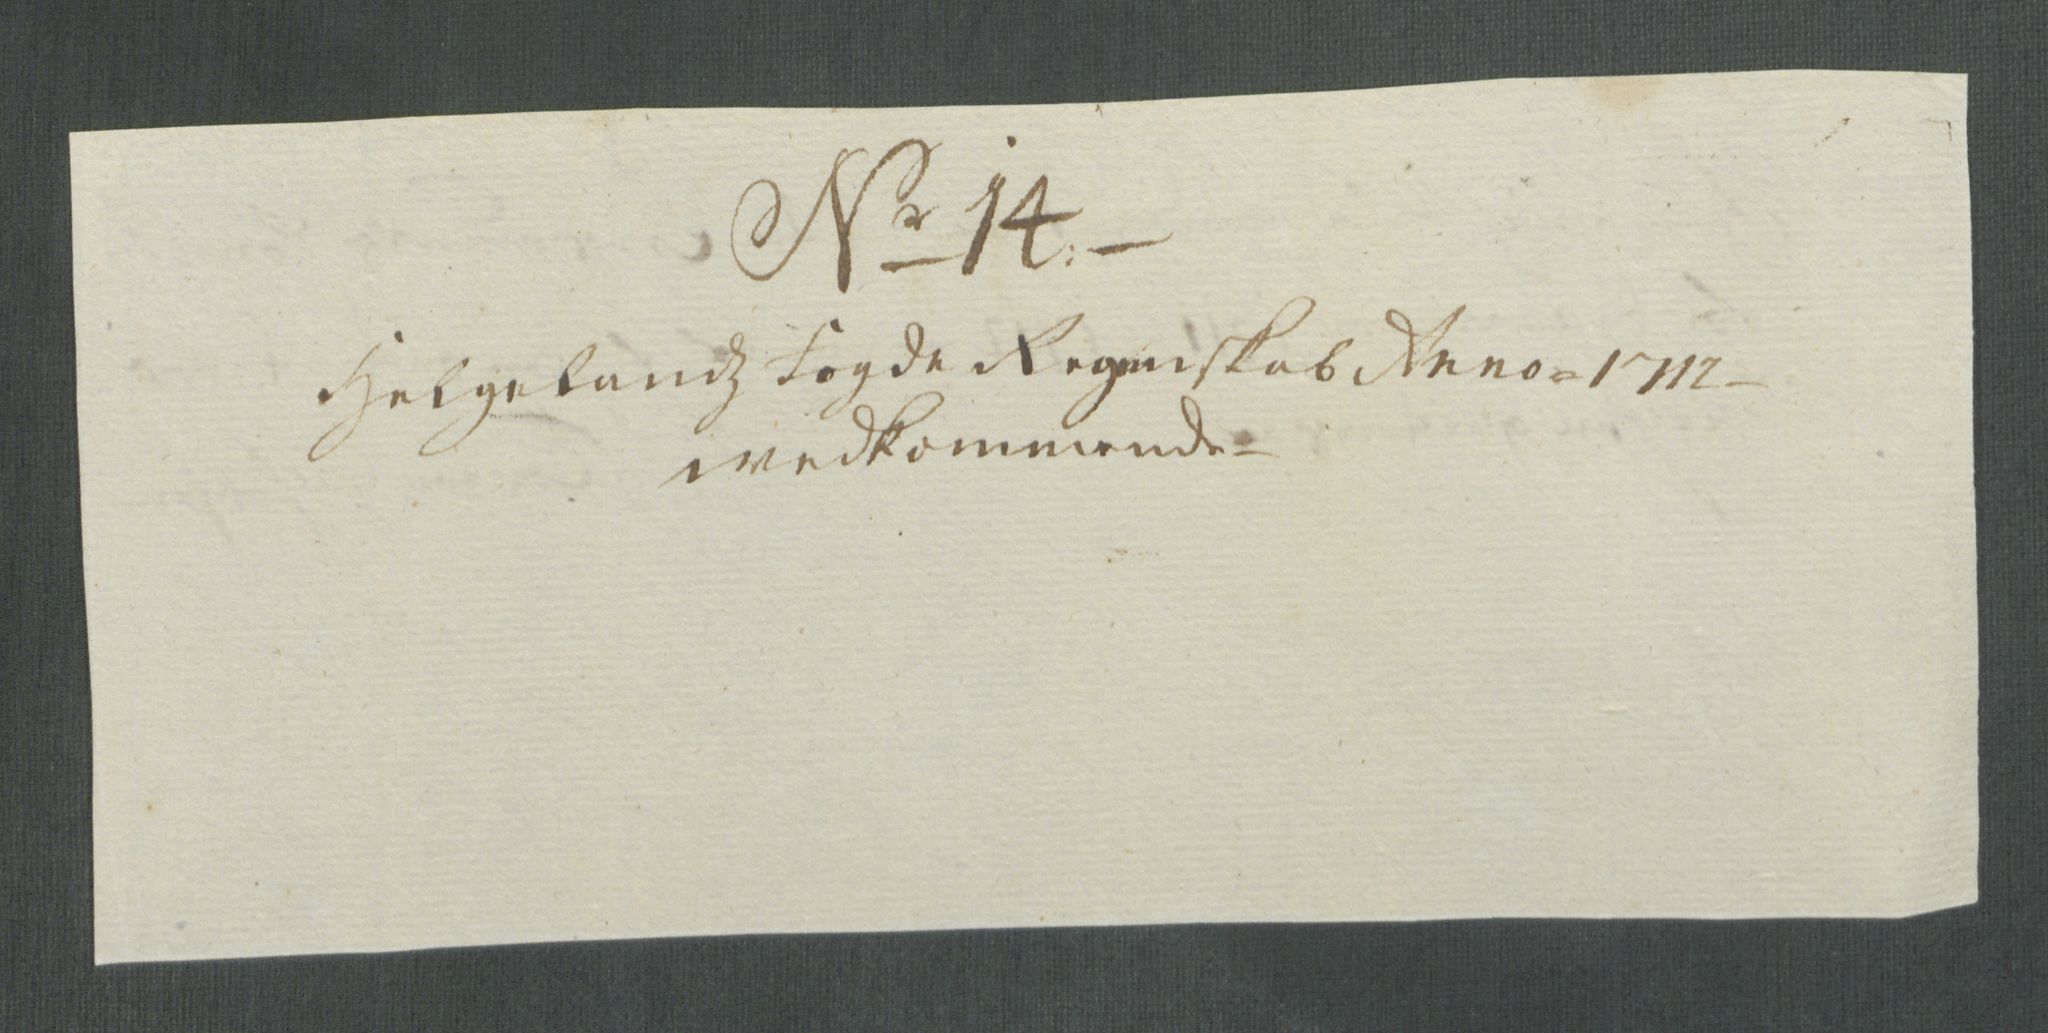 Nr 14.
Helgelandz Fogde Regenskab Anno 1712
wedkommende